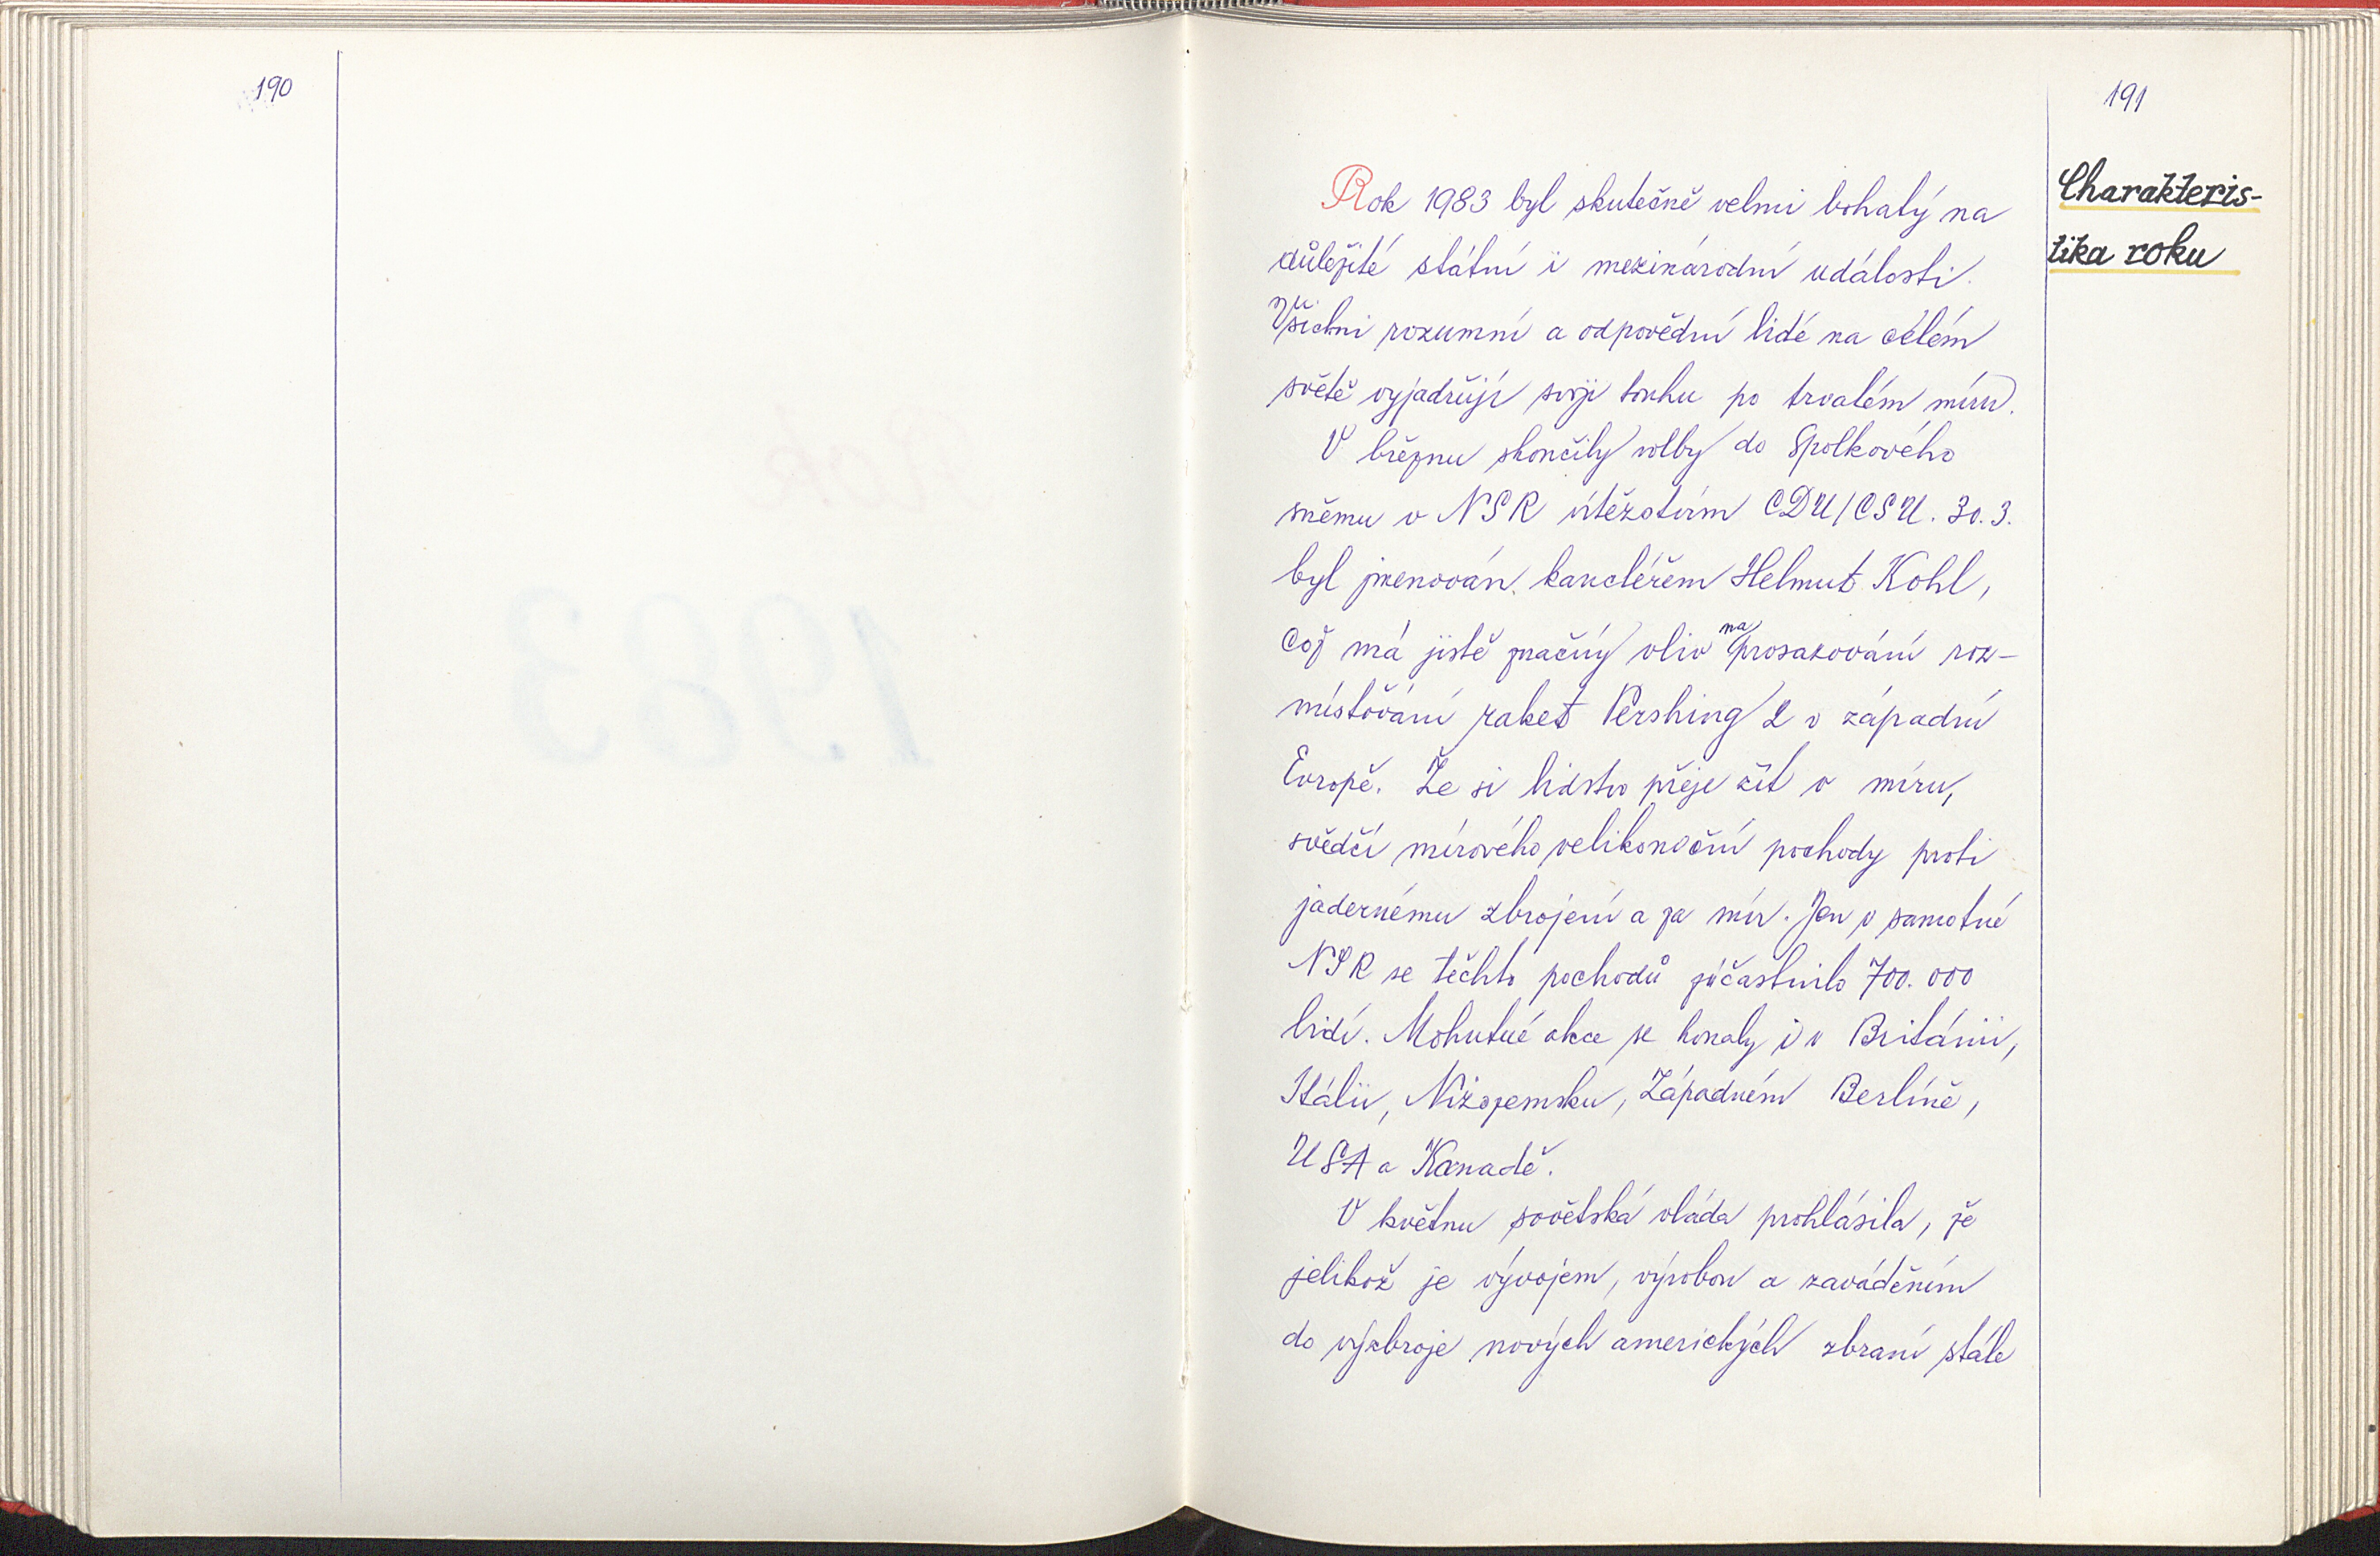 190
191
Charakteris-
tika roku
Rok 1983 byl skutečně velmi bohatý na
důležité státní i mezinárodní události.
Všichni rozumní a odpovědní lidé na celém
světě vyjadřují svoji touhu po trvalém míru.
V březnu skončily volby do Spolkového
sněmu v NSR vítězstvím CDU/CSU. 30.3.
byl jmenován kancléřem Helmut Kohl,
což má jistě značný vliv na prosazování roz-
místování raket Pershing 2 v západní
Evropě. Že si lidstvo přeje žít v míru,
svědčí mírového velikonoční pochody proti
jadernému zbrojení a za mír. Jen v samotné
NSR se těchto pochodů zúčastnilo 700.000
lidí. Mohutné akce se konaly i v Británii,
Itálii, Nizozemsku, Západném Berlíně,
USA a Kanadě.
V květnu sovětská vláda prohlásila, že
jelikož je vývojem, výrobou a zaváděním
do výzbroje nových amerických zbraní stále